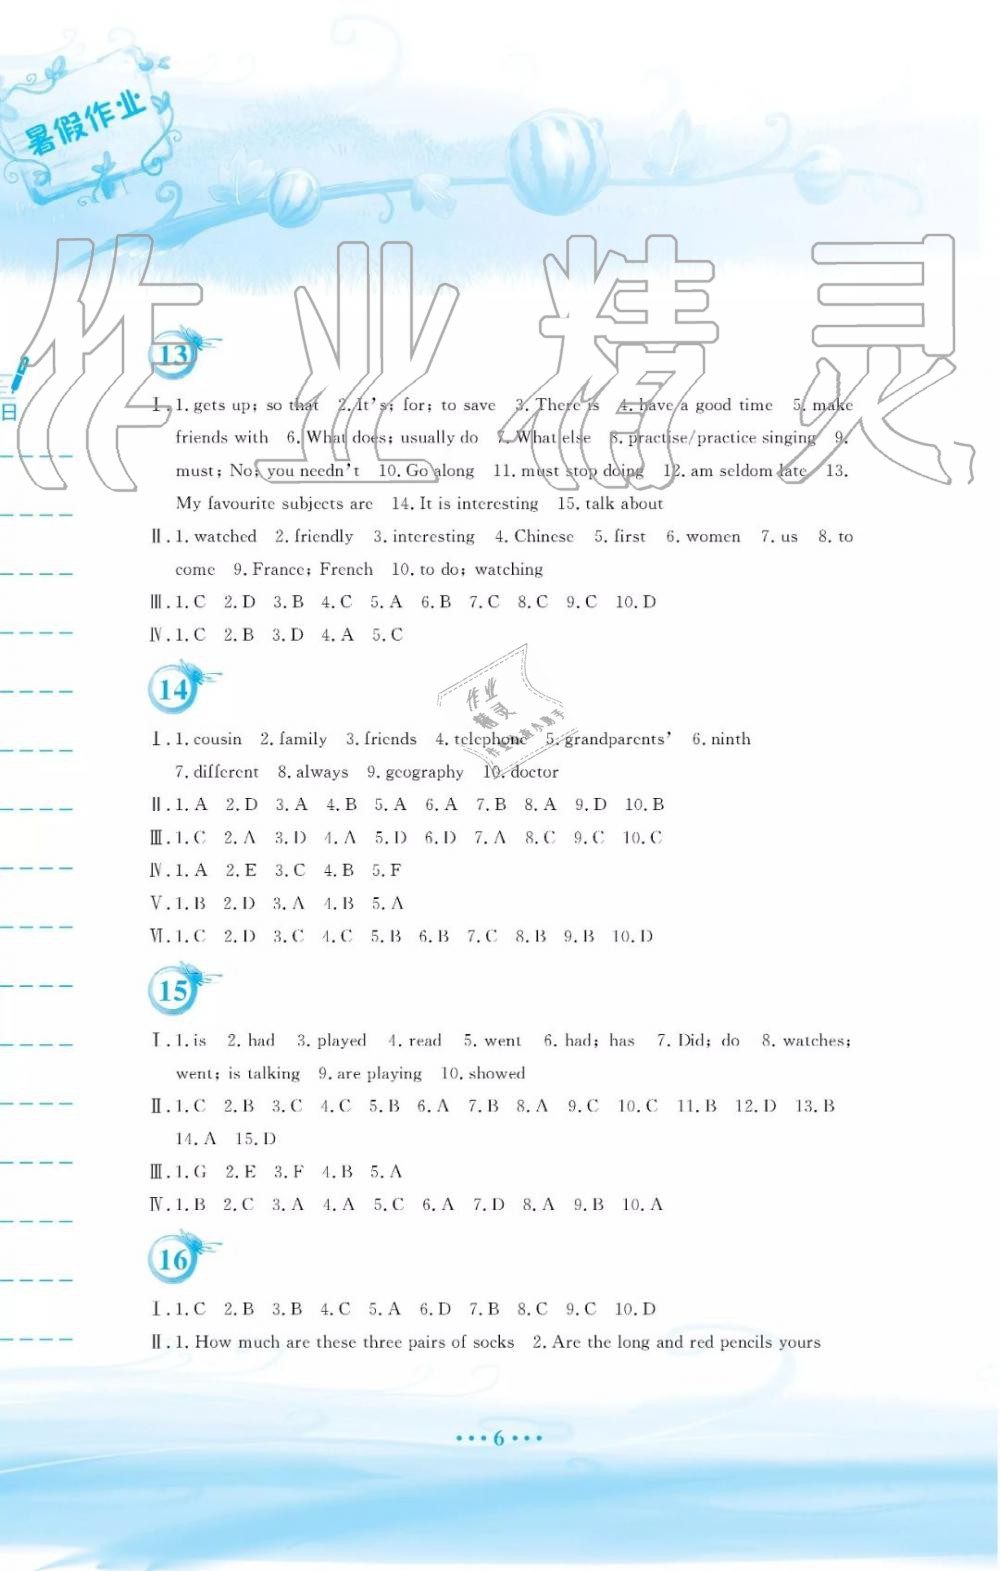 暑假作业
作业精灵
13
日
Ⅰ. 1. gets up; so that 2. It's; for; to save 3. There is 4. have a good time 5. make
friends with 6. What does; usually do 7. What else 8. practise/practice singing 9.
must; No; you needn't 10. Go along 11. must stop doing 12. am seldom late 13.
My favourite subjects are 14. It is interesting 15. talk about
Ⅱ. 1. watched 2. friendly 3. interesting 4. Chinese 5. first 6. women 7. us 8. to
come 9. France; French 10. to do; watching
Ⅲ. 1. C 2. D 3. B 4. C 5. A 6. B 7. C 8. C 9. C 10. D
Ⅳ. 1. C 2. B 3. D 4. A 5. C
作业
精灵
14
Ⅰ. 1. cousin 2. family 3. friends 4. telephone 5. grandparents' 6. ninth
7. different 8. always 9. geography 10. doctor
Ⅱ. 1. A 2. D 3. A 4. B 5. A 6. A 7. B 8. A 9. D 10. B
Ⅲ. 1. C 2. A 3. D 4. A 5. D 6. D 7. A 8. C 9. C 10. C
Ⅳ. 1. A 2. E 3. C 4. B 5. F
Ⅴ. 1. B 2. D 3. A 4. B 5. A
Ⅵ. 1. C 2. D 3. C 4. C 5. B 6. B 7. C 8. B 9. B 10. D
15
Ⅰ. 1. is 2. had 3. played 4. read 5. went 6. had; has 7. Did; do 8. watches;
went; is talking 9. are playing 10. showed
Ⅱ. 1. C 2. B 3. C 4. C 5. B 6. A 7. B 8. A 9. C 10. C 11. B 12. D 13. B
14. A 15. D
Ⅲ. 1. G 2. E 3. F 4. B 5. A
Ⅳ. 1. B 2. C 3. A 4. A 5. C 6. A 7. D 8. A 9. B 10. A
16
Ⅰ. 1. C 2. B 3. B 4. C 5. A 6. D 7. B 8. C 9. C 10. D
Ⅱ. 1. How much are these three pairs of socks 2. Are the long and red pencils yours
••• 6 •••